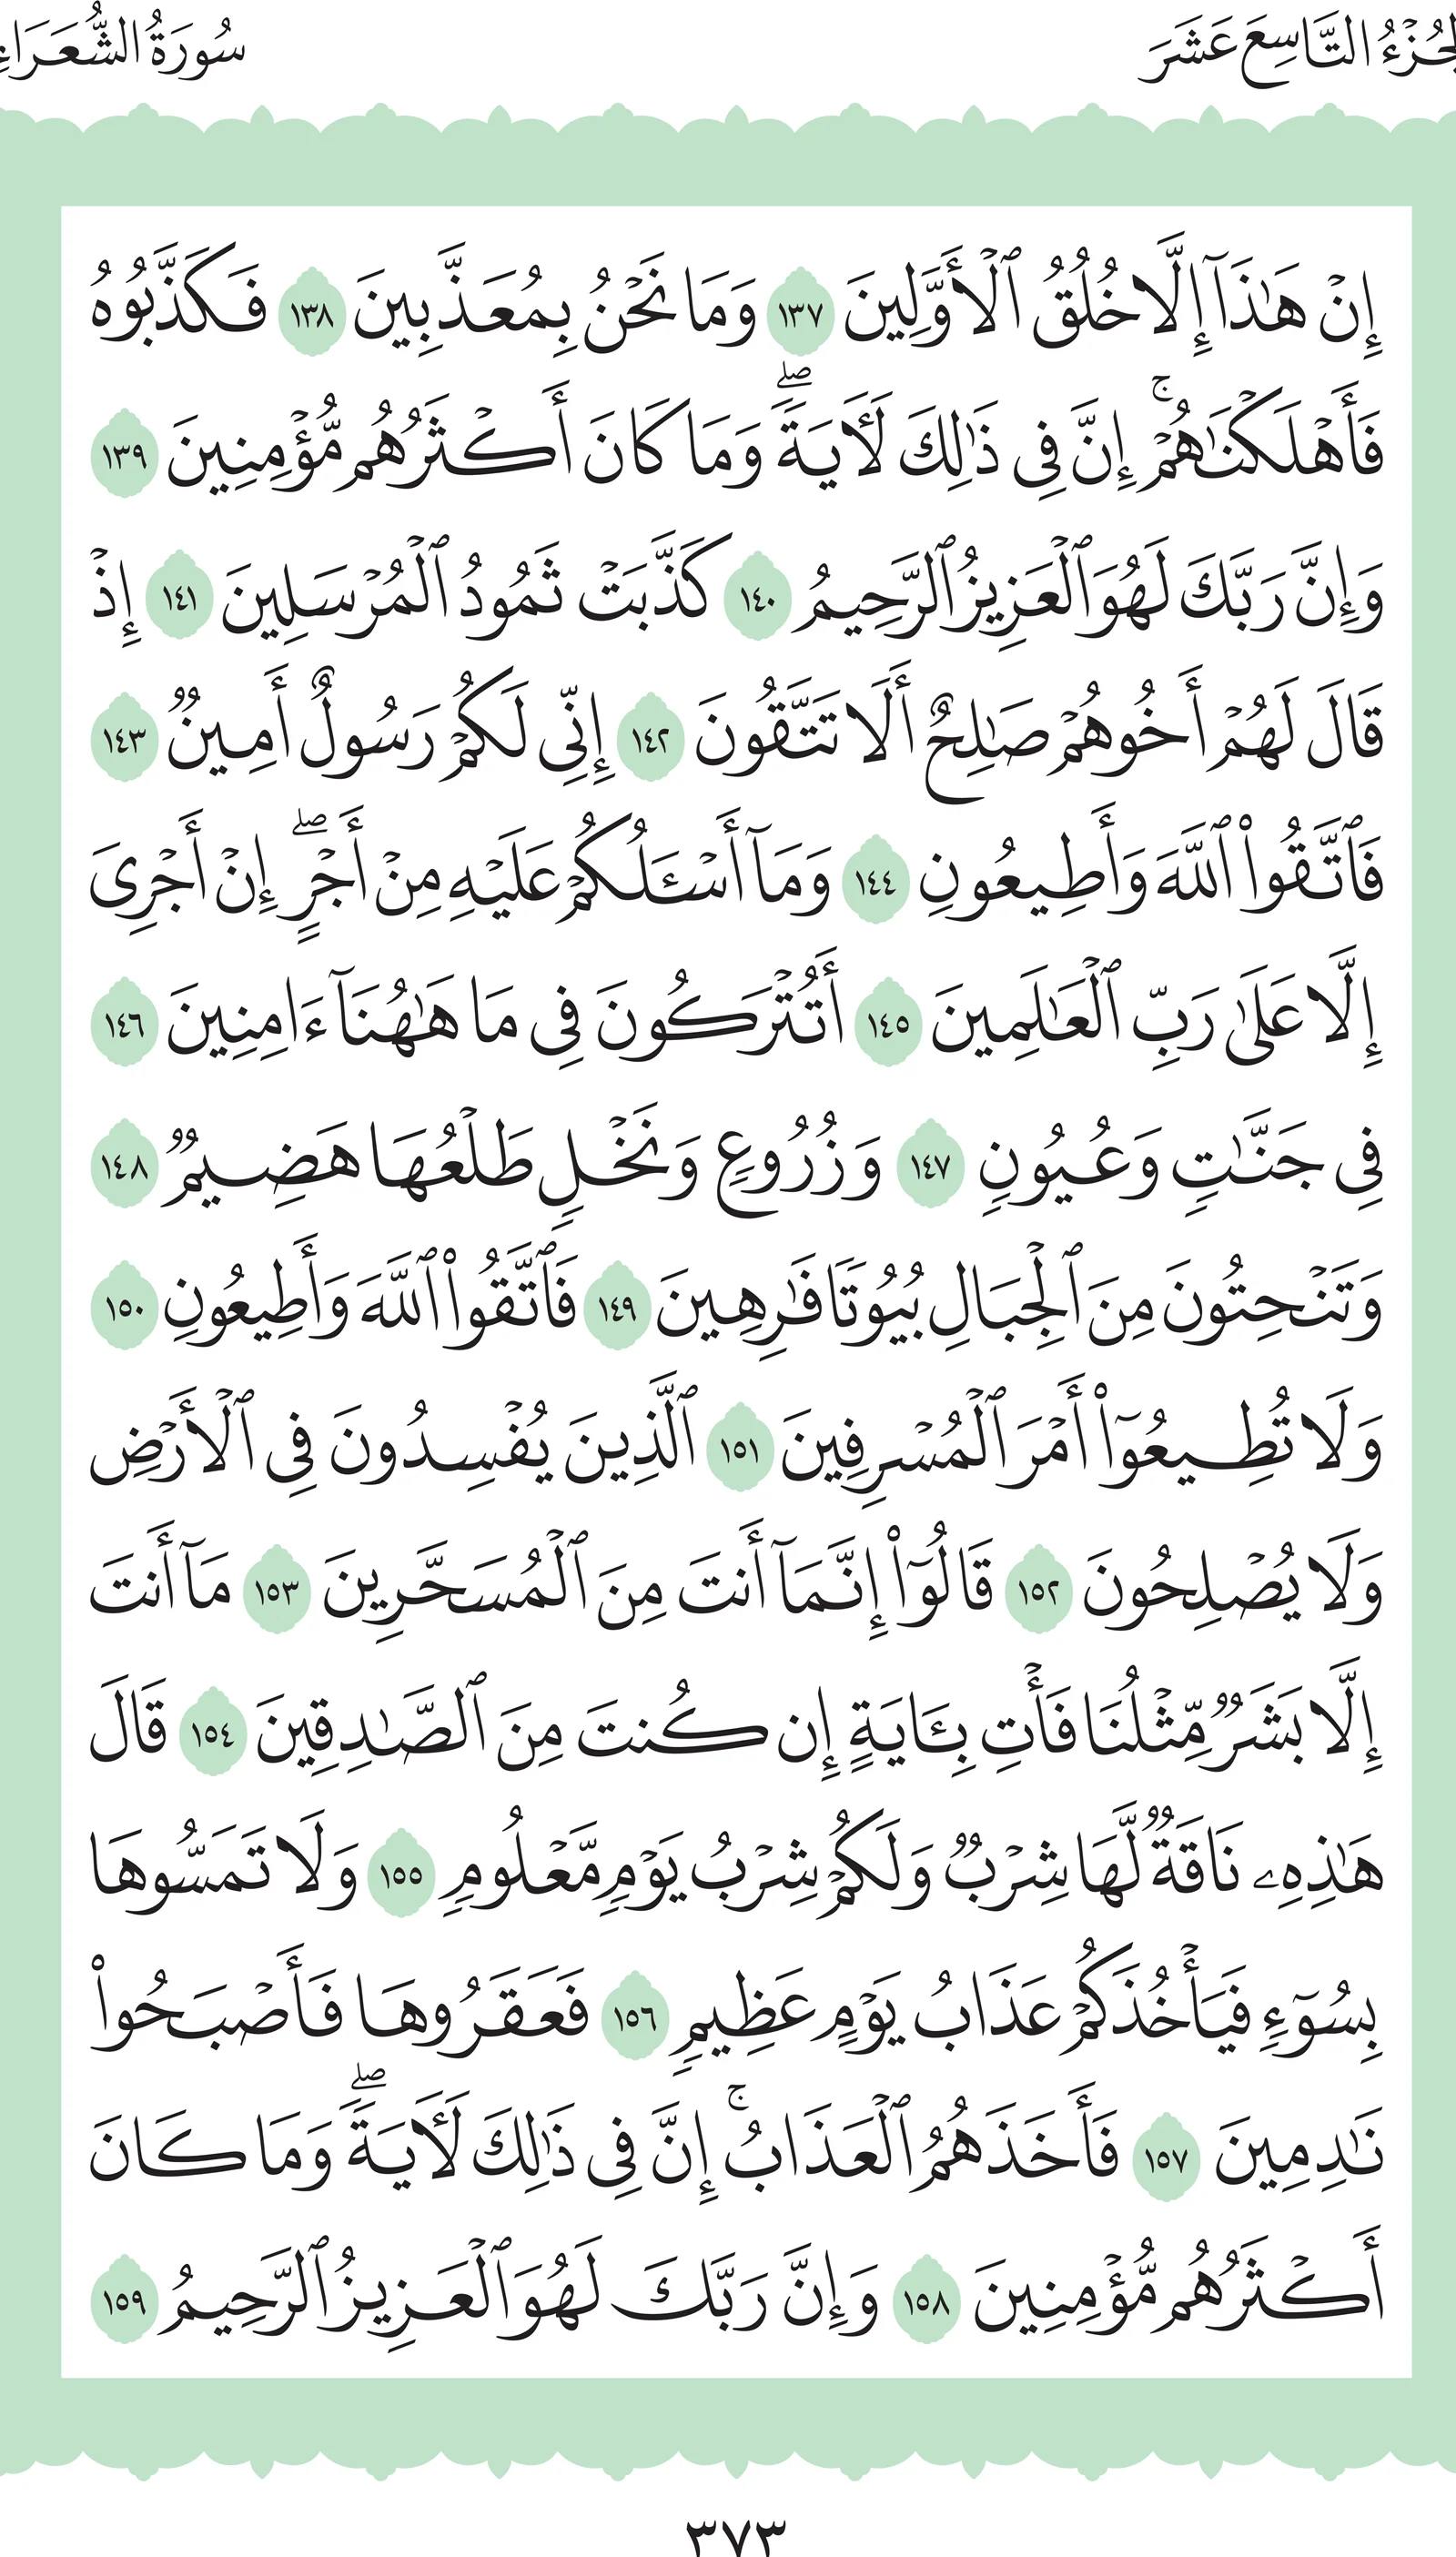 الجُزْءُ التَّاسِعَ عَشَرَ
سُورَةُ الشُّعَرَاءِ
إِنْ هَٰذَآ إِلَّا خُلُقُ ٱلْأَوَّلِينَ ١٣٧ وَمَا نَحْنُ بِمُعَذَّبِينَ ١٣٨ فَكَذَّبُوهُ
فَأَهْلَكْنَٰهُمْ ۚ إِنَّ فِى ذَٰلِكَ لَـَٔايَةً ۖ وَمَا كَانَ أَكْثَرُهُم مُّؤْمِنِينَ ١٣٩
وَإِنَّ رَبَّكَ لَهُوَ ٱلْعَزِيزُ ٱلرَّحِيمُ ١٤٠ كَذَّبَتْ ثَمُودُ ٱلْمُرْسَلِينَ ١٤١ إِذْ
قَالَ لَهُمْ أَخُوهُمْ صَٰلِحٌ أَلَا تَتَّقُونَ ١٤٢ إِنِّى لَكُمْ رَسُولٌ أَمِينٌ ١٤٣
فَٱتَّقُوا۟ ٱللَّهَ وَأَطِيعُونِ ١٤٤ وَمَآ أَسْـَٔلُكُمْ عَلَيْهِ مِنْ أَجْرٍ ۖ إِنْ أَجْرِىَ
إِلَّا عَلَىٰ رَبِّ ٱلْعَٰلَمِينَ ١٤٥ أَتُتْرَكُونَ فِى مَا هَٰهُنَآ ءَامِنِينَ ١٤٦
فِى جَنَّٰتٍ وَعُيُونٍ ١٤٧ وَزُرُوعٍ وَنَخْلٍ طَلْعُهَا هَضِيمٌ ١٤٨
وَتَنْحِتُونَ مِنَ ٱلْجِبَالِ بُيُوتًا فَٰرِهِينَ ١٤٩ فَٱتَّقُوا۟ ٱللَّهَ وَأَطِيعُونِ ١٥٠
وَلَا تُطِيعُوٓا۟ أَمْرَ ٱلْمُسْرِفِينَ ١٥١ ٱلَّذِينَ يُفْسِدُونَ فِى ٱلْأَرْضِ
وَلَا يُصْلِحُونَ ١٥٢ قَالُوٓا۟ إِنَّمَآ أَنتَ مِنَ ٱلْمُسَحَّرِينَ ١٥٣ مَآ أَنتَ
إِلَّا بَشَرٌ مِّثْلُنَا فَأْتِ بِـَٔايَةٍ إِن كُنتَ مِنَ ٱلصَّٰدِقِينَ ١٥٤ قَالَ
هَٰذِهِۦ نَاقَةٌ لَّهَا شِرْبٌ وَلَكُمْ شِرْبُ يَوْمٍ مَّعْلُومٍ ١٥٥ وَلَا تَمَسُّوهَا
بِسُوٓءٍ فَيَأْخُذَكُمْ عَذَابُ يَوْمٍ عَظِيمٍ ١٥٦ فَعَقَرُوهَا فَأَصْبَحُوا۟
نَٰدِمِينَ ١٥٧ فَأَخَذَهُمُ ٱلْعَذَابُ ۚ إِنَّ فِى ذَٰلِكَ لَـَٔايَةً ۖ وَمَا كَانَ
أَكْثَرُهُم مُّؤْمِنِينَ ١٥٨ وَإِنَّ رَبَّكَ لَهُوَ ٱلْعَزِيزُ ٱلرَّحِيمُ ١٥٩
٣٧٣